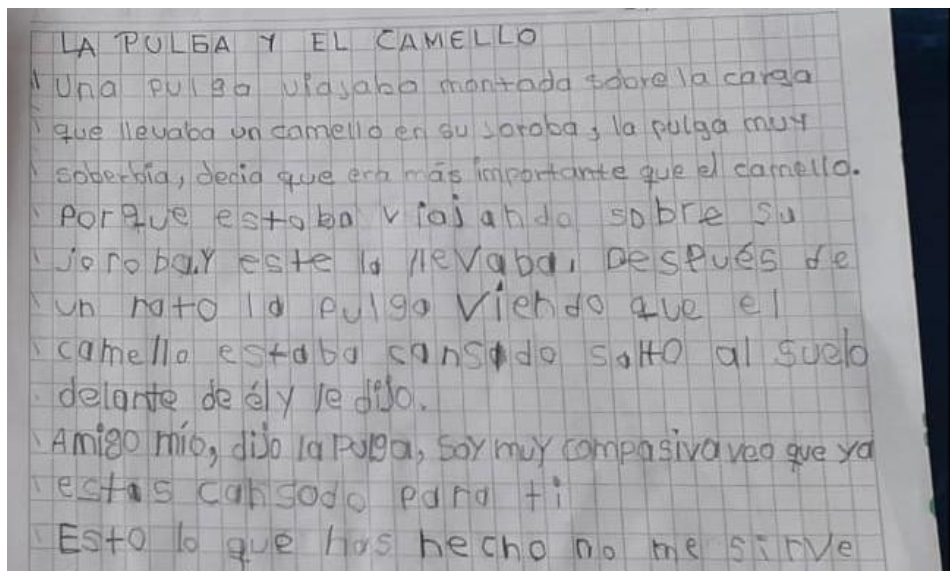 LA PULGA Y EL CAMELLO
Una pulga viajaba montada sobre la carga
que llevaba un camello en su joroba, la pulga muy
soberbia, decia que era más importante que el camello.
Porque estaba viajando sobre su
joroba.Y este la llevaba, Después de
un rato la pulga viendo que el
camello estaba cansado salto al suelo
delante de él y le dijo.
Amigo mío, dijo la pulga, soy muy compasiva veo que ya
estas cansado para ti
Esto lo que has hecho no me sirve